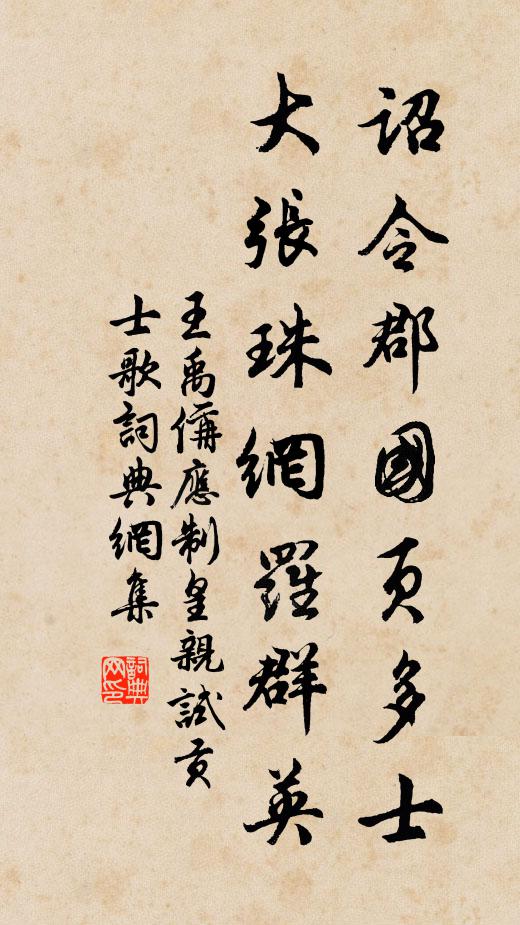 詔令郡國貢多士
大張珠網羅群英
王禹偁應制皇親試貢
士歌詞典網集
詞典
网印